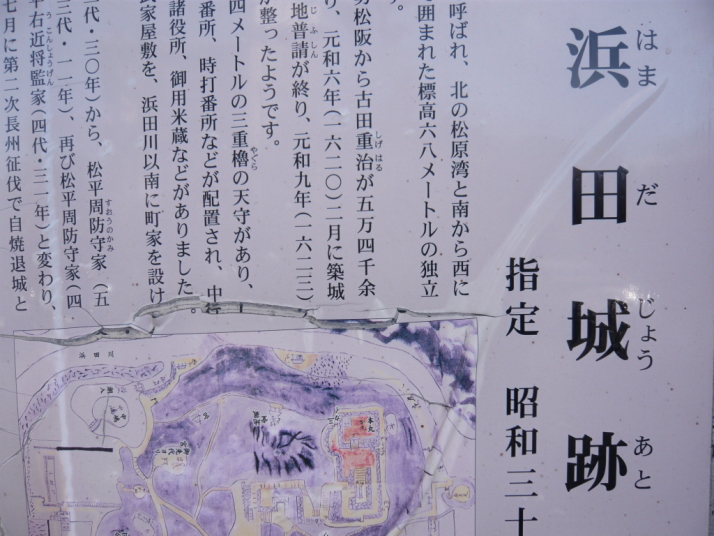 浜田城跡
はまだじょうあと
指定 昭和三十
呼ばれ、北の松原湾と南から西に
囲まれた標高六八メートルの独立
す。
勢松阪から古田重治が五万四千余
しげはる
り、元和六年(一六二〇)二月に築城
地普請が終り、元和九年(一六二三)
じふしん
が整ったようです。
四メートルの三重櫓の天守があり、
やぐら
番所、時打番所などが配置され、中
諸役所、御用米蔵などがありました。
民家屋敷を、浜田川以南に町家を設け
代・三〇年)から、松平周防守家(五
すおうのかみ
三代・一一年)、再び松平周防守家(四
平右近将監家(四代・三一年)と変わり、
うこんしょうげん
七月に第二次長州征伐で自焼退城と
本丸